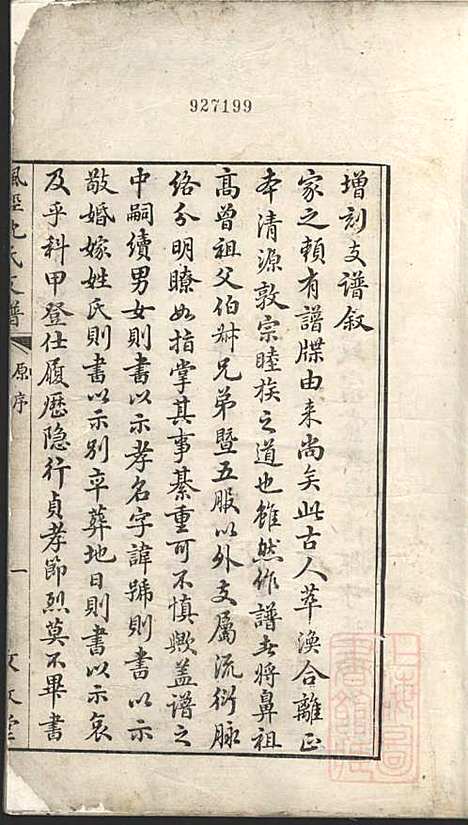 927199
增刻支譜叙
家之頼有譜牒由来尚矣此古人萃渙合離正
本清源敦宗睦族之道也雖然作譜者將鼻祖
高曾祖父伯叔兄弟暨五服以外支屬流衍脉
络分明瞭如指掌其事綦重可不慎歟盖譜之
中嗣續男女則書以示孝名字諱號則書以示
敬婚嫁姓氏則書以示别卒葬地日則書以示哀
及乎科甲登仕履歷隐行貞孝節烈莫不畢書
楓涇沈氏支譜
原序
一